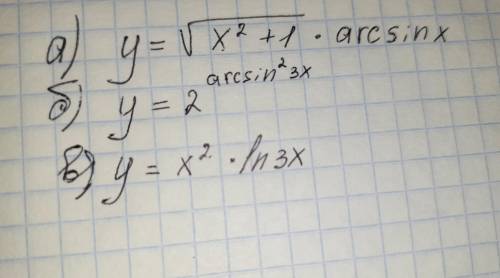 а) y = √(x² + 1) · arcsinx
б) y = 2^(arcsin²3x)
в) y = x² · ln3x